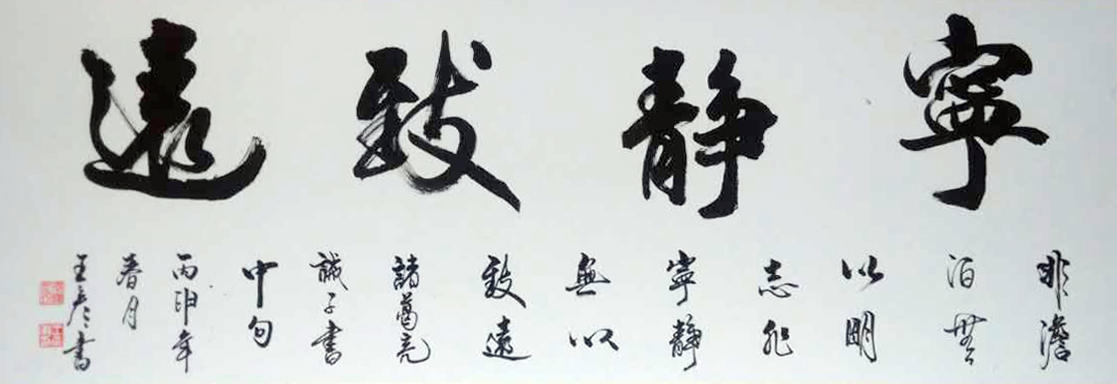 寧静致遠
非澹
泊無
以明
志非
寧静
無以
致遠
諸葛亮
誡子書
中句
丙申年
春月
王彦書